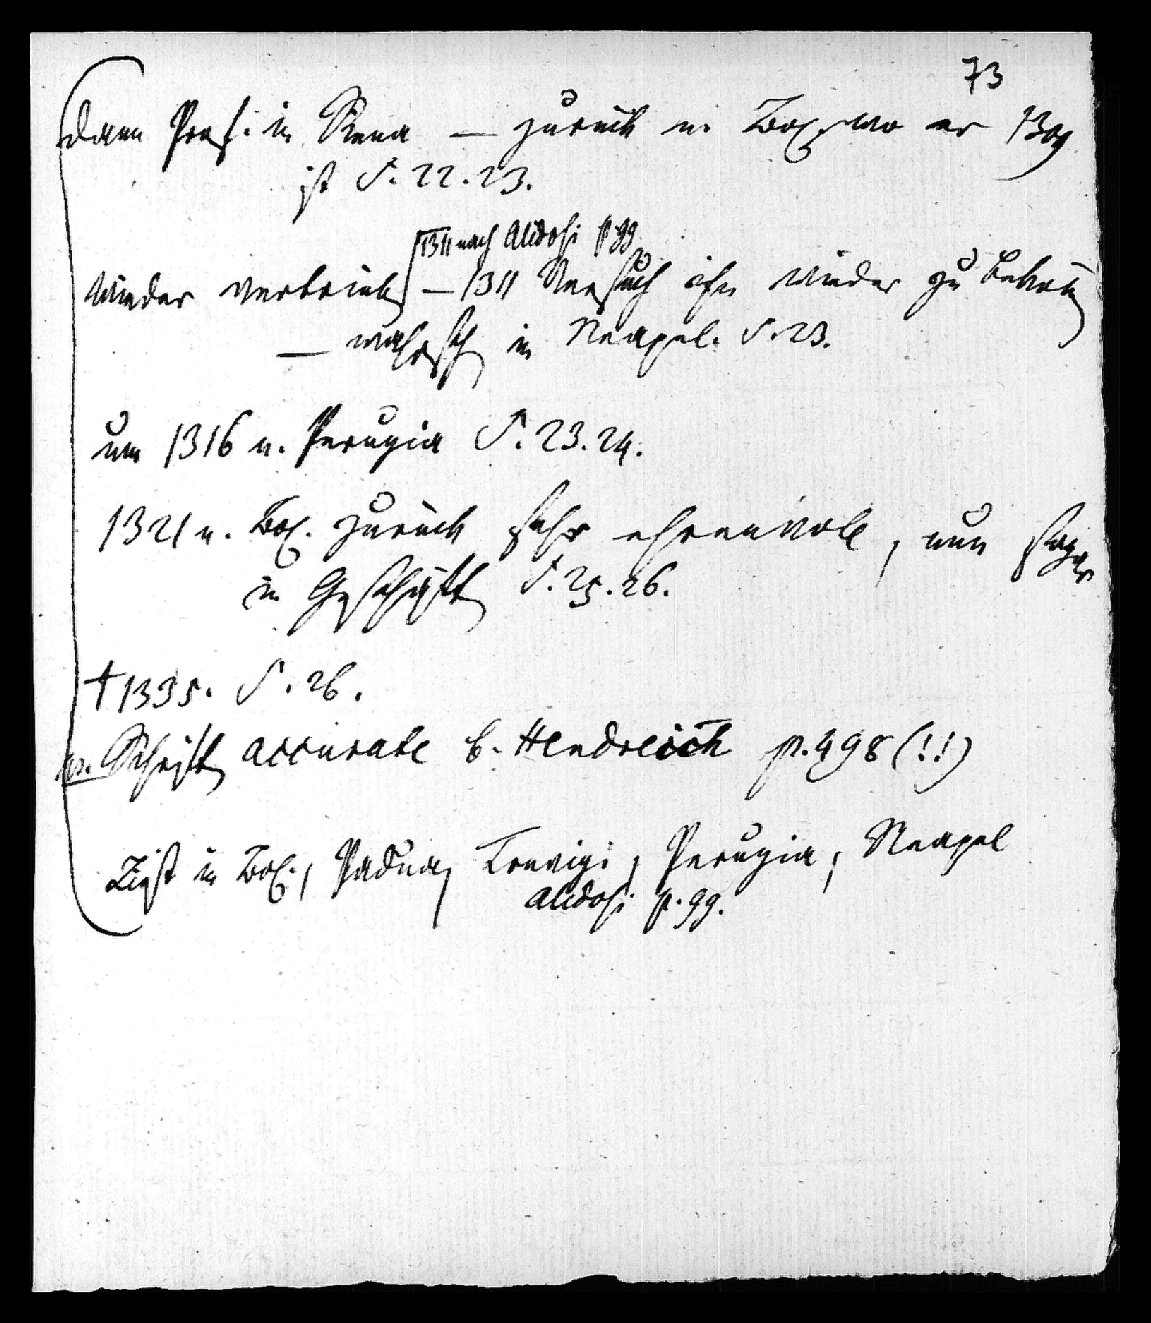 73
dann Prof. in Siena — zurück n. Bol. wo er 1309
ist S. 22. 23.
1311 nach Alidosi p. 99
wieder vertrieben — 1311 Versuch ihn wieder zu
— in Neapel. S. 23.
um 1316 n. Perugia S. 23. 24.
1321 n. Bol. zurück sehr ehrenvoll, nun sogar
in Geschäften S. 25. 26.
† 1335. S. 26.
Schriften accurate b. Hendreich p. 498 (!!)
Liest in Bol., Padua, Trevigi, Perugia, Neapel
Alidosi p. 99.